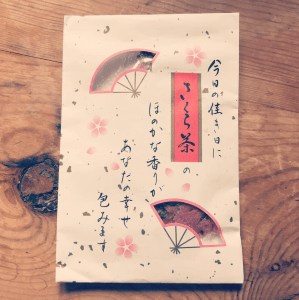 今日の佳き日に
さくら茶の
ほのかな香りが
あなたの幸せ
包みます